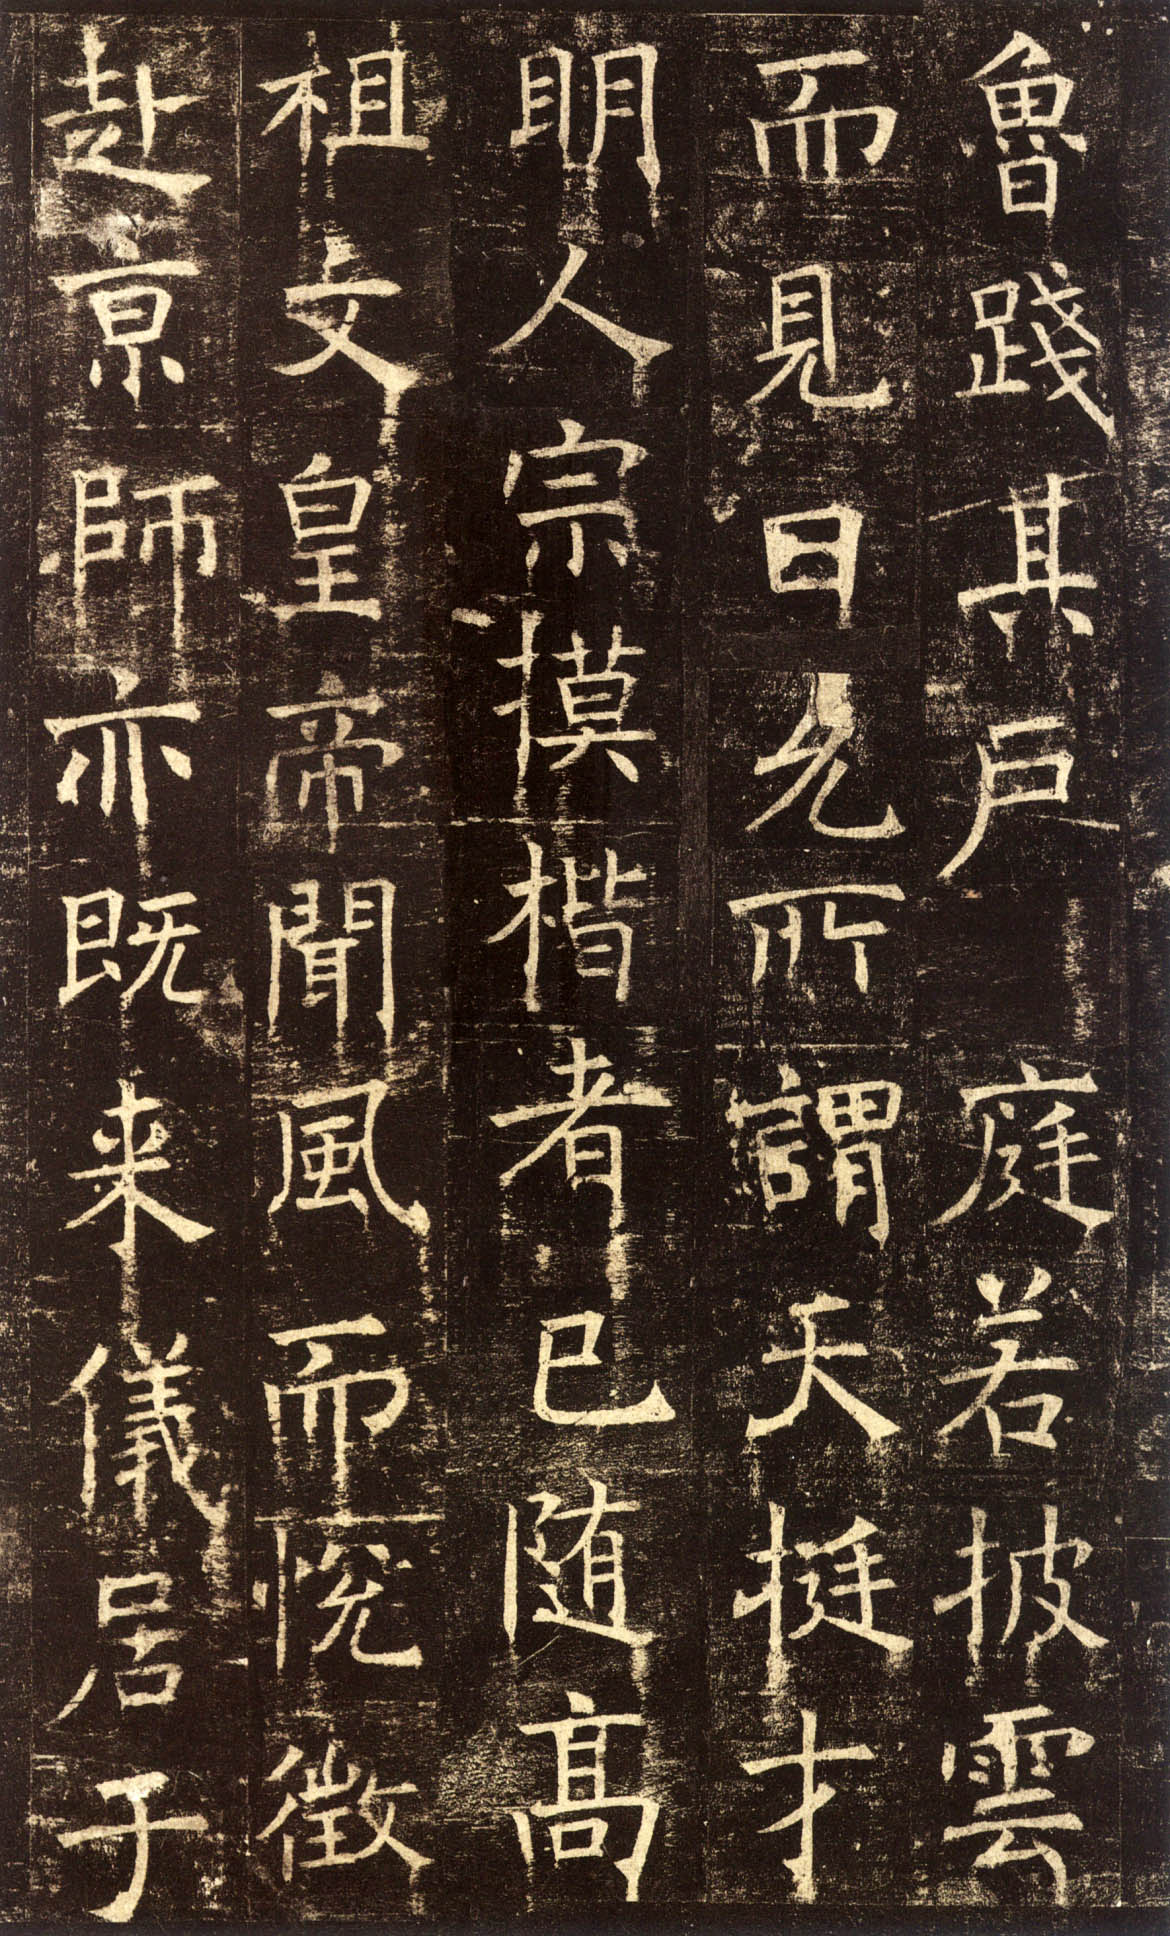 魯踐其戶庭若披雲
而見日見所謂天挺才
明人宗摸楷者已随高
祖文皇帝聞風而悅徵
赴京師亦既来儀居于